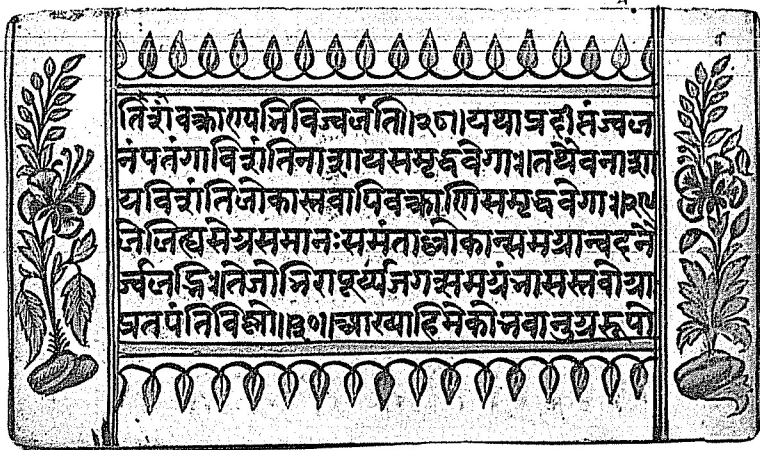 तिशंवक्राण्यभिविज्वलंति॥२८॥यथाप्रदीप्तंज्वल
नंपतंगाविशंतिनाशायसमृद्धवेगाः॥तथैवनाशा
यविशंतिलोकास्तवापिवक्राणिसमृद्धवेगाः॥२९
लेलिह्यसेग्रसमानःसमंताल्लोकान्समग्रान्वदनै
र्ज्वलद्भिः॥तेजोभिरापूर्य्यजगत्समग्रंभासस्तवोग्राः
प्रतपंतिविष्णो॥३०॥आख्याहिमेकोभवानुग्ररूपो